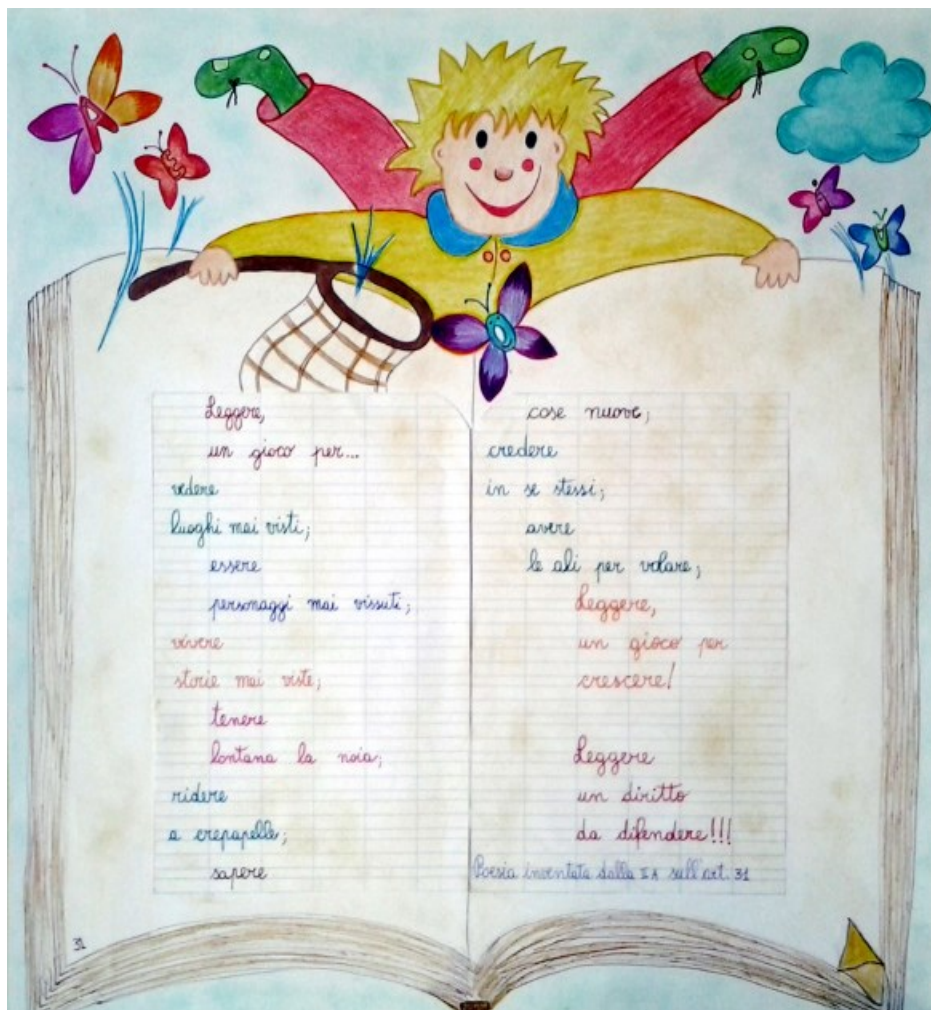 Leggere,
un gioco per...
vedere
luoghi mai visti;
essere
personaggi mai vissuti;
vivere
storie mai viste;
tenere
lontana la noia;
ridere
a crepapelle;
sapere
31
cose nuove;
credere
in se stessi;
avere
le ali per volare;
Leggere,
un gioco per
crescere!
Leggere
un diritto
da difendere!!!
Poesia inventata dalla II A sull'art. 31